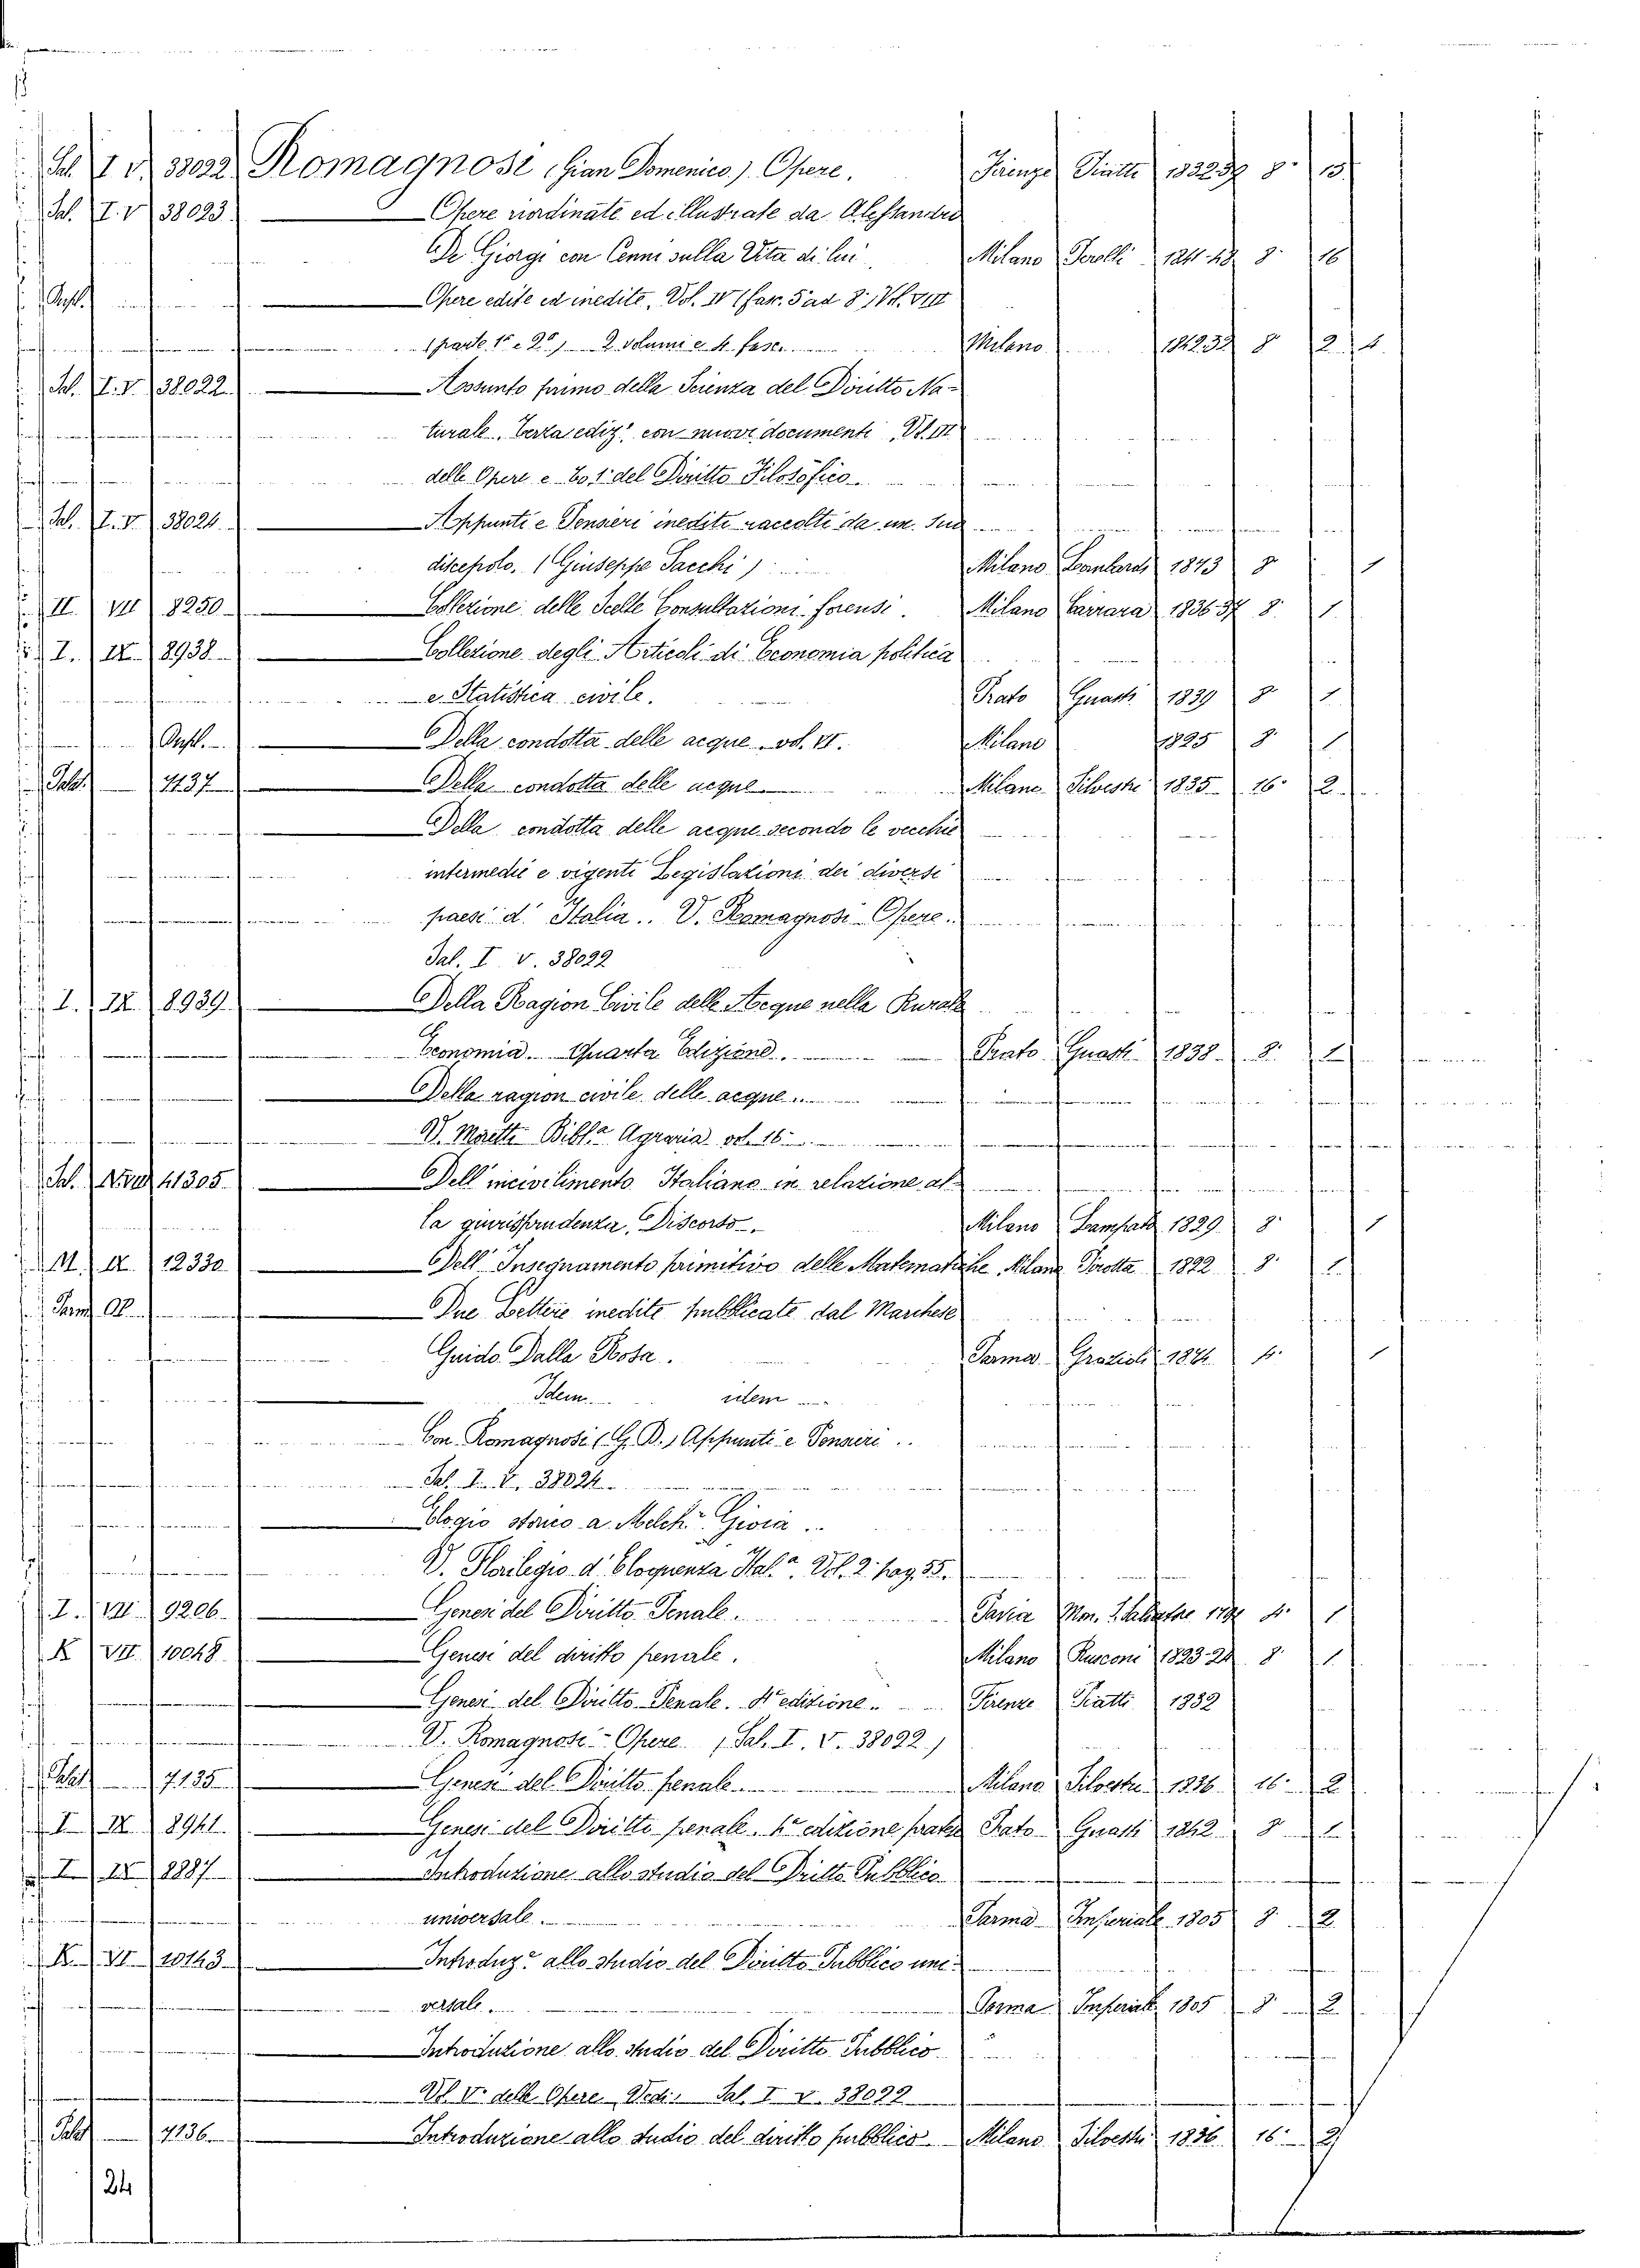 Sal. I V. 38022 Romagnosi (Gian Domenico) Opere. Firenze Piatti 1832 39 8° 15
Sal. I. V 38023 Opere riordinate ed illustrate da Alessandro
De Giorgi con Cenni sulla Vita di lui Milano Perelli 1841-48 8° 16
Aust. Opere edite ed inedite, Vol. IV (fasc. 5 ad 8) Vol. VIII
(parte 1a e 2a) 2 Volumi e 4 fasc. Milano 8 2 4
Sal. I. V. 38022 Assunto primo della Scienza del Diritto Na-
turale. Terza ediz. con nuovi documenti, Vol. III
delle Opere e To. 1° del Diritto Filosofico
Sal. I. V. 38024 Appunti e Pensieri inediti raccolti da un suo
discepolo. (Giuseppe Sacchi) Milano 1843 8° 1
II. VII 8250 Collezione delle Scelte Consultazioni forensi. Milano Carrara 1836 37 8. 1.
I. IX. 8938 Collezione degli Articoli di Economia politica
e Statistica civile. Prato Guasti 1839 8 1
Aust. Della condotta delle acque vol. VI. Milano 1825 8 1
Palat. 7137 Della condotta delle acque Milano Silvestri 1835 16° 2
Della condotta delle acque secondo le vecchie
intermedie e vigenti Legislazioni dei diversi
paesi d'Italia. V. Romagnosi Opere.
Sal. I V. 38022
I. IX 8939 Della Ragion Civile delle Acque nella Rurale
Economia. Quarta Edizione. Prato Guasti 1838. 8. 1
Della ragion civile delle acque
V. Moretti Bibla Agraria vol. 16
Sal. 41305 Dell'incivilimento Italiano in relazione al-
la giurisprudenza, Discorso. Milano Lampato 1829 8° 1
M. IX. 12330 Dell'Insegnamento primitivo delle Matematiche Milano Pirotta 1822 8. 1
Parm. Due Lettere inedite pubblicate dal Marchese
Guido Dalla Rosa. Parma Grazioli 1841 4. 1
Idem idem
Con Romagnosi (G. D.) Appunti e Pensieri
Sal. I. V. 38024
Elogio storico a Melch.re Gioia
V. Florilegio d'Eloquenza Ital.a Vol. 2. pag. 55.
I. VII 9206 Genesi del Diritto Penale. Pavia Mon. S. Salvatore 4. 1
K VII. 10048 Genesi del diritto penale. Milano Rusconi 1823-24 8. 1
Genesi del Diritto Penale. 4a edizione. Firenze Piatti 1832
V. Romagnosi Opere (Sal. I. V. 38022)
Palat. 7135 Genesi del Diritto penale Milano Silvestri 1836 16° 2
I IX 8941 Genesi del Diritto penale. 4a edizione pratese Prato Guasti 1842 8 1
I IX 8887 Introduzione allo studio del Dritto Pubblico
universale Parma Imperiale 1805 8 2
K. VI 10143 Introduz.e allo studio del Diritto Pubblico uni-
versale Parma Imperiale 1805 8 2
Introduzione allo studio del Diritto Pubblico
Vol. V. delle Opere, Vedi. Sal. I V. 38022
Palat 7136 Introduzione allo studio del diritto pubblico Milano Silvestri 1836 16° 2
24